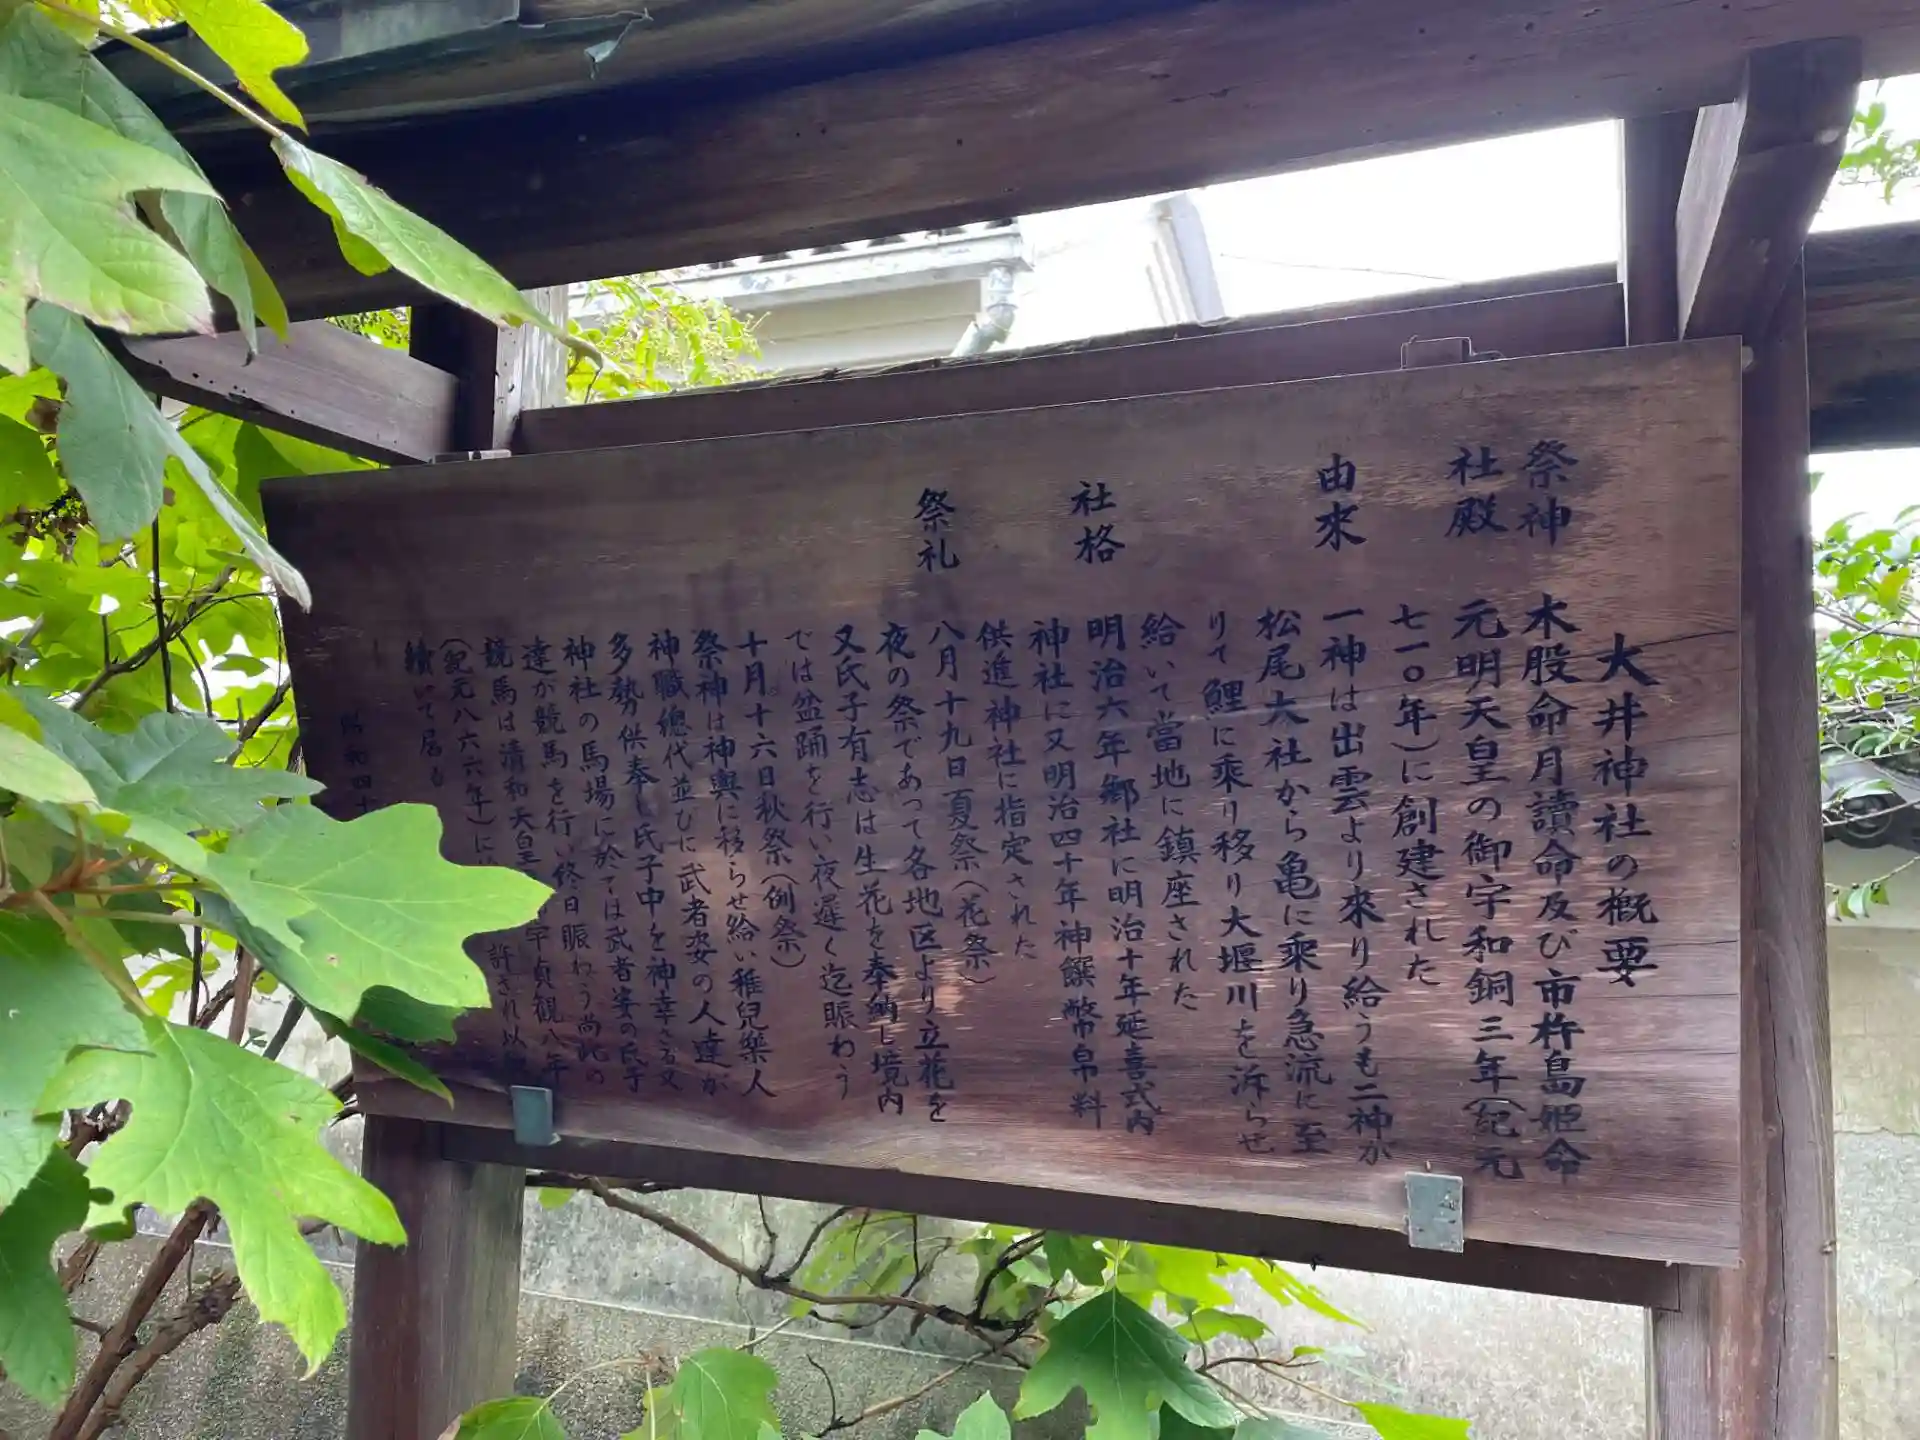 大井神社の概要
祭神 木股命月讀命及び市杵島姫命
社殿 元明天皇の御宇和銅三年(紀元
七一〇年)に創建された
由来 一神は出雲より來り給うも二神が
松尾大社から亀に乘り急流に至
りて鯉に乘り移り大堰川を泝らせ
給いて當地に鎮座された
社格 明治六年郷社に明治十年延喜式内
神社に又明治四十年神饌幣帛料
供進神社に指定された
祭礼 八月十九日夏祭(花祭)
夜の祭であって各地区より立花を
又氏子有志は生花を奉納し境内
では盆踊を行い夜遲く迄賑わう
十月十六日秋祭(例祭)
祭神は神輿に移らせ給い稚兒樂人
神職總代並びに武者姿の人達が
多勢供奉し氏子中を神幸さる又
神社の馬場に於ては武者姿の氏子
達が競馬を行い終日賑わう尚此の
競馬は清和天皇 宇貞観八年
(紀元八六六年)に 許され以
續いて居る
昭和四十